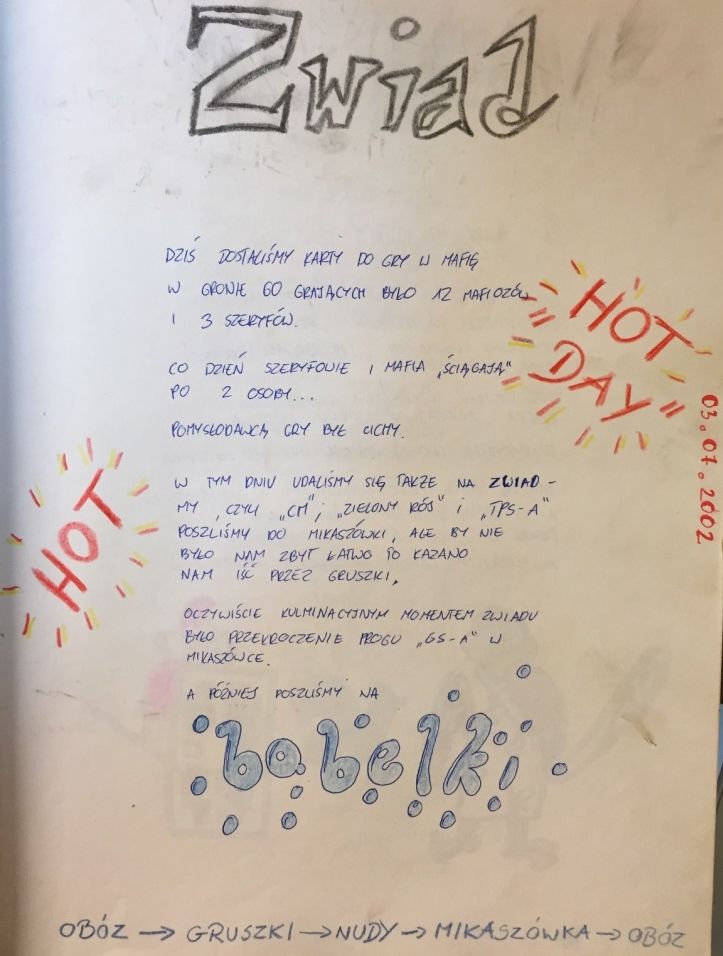 Zwiad
DZIŚ DOSTALIŚMY KARTY DO GRY W MAFIĘ
W GRONIE 60 GRAJĄCYCH BYŁO 12 MAFIOZÓW
I 3 SZERYFÓW.
HOT
DAY
CO DZIEŃ SZERYFOWIE I MAFIA „ŚCIĄGAJĄ”
PO 2 OSOBY...
POMYSŁODAWCĄ GRY BYŁ CICHY.
03.07.2002
HOT
W TYM DNIU UDALIŚMY SIĘ TAKŻE NA ZWIAD -
MY, CZYLI „CM”; „ZIELONY RÓJ” I „TPS-A”
POSZLIŚMY DO MIKASZÓWKI, ALE BY NIE
BYŁO NAM ZBYT ŁATWO TO KAZANO
NAM IŚĆ PRZEZ GRUSZKI.
OCZYWIŚCIE KULMINACYJNYM MOMENTEM ZWIADU
BYŁO PRZEKROCZENIE PROGU „GS-A” W
MIKASZÓWCE.
A PÓŹNIEJ POSZLIŚMY NA
bąbelki
OBÓZ → GRUSZKI → NUDY → MIKASZÓWKA → OBÓZ